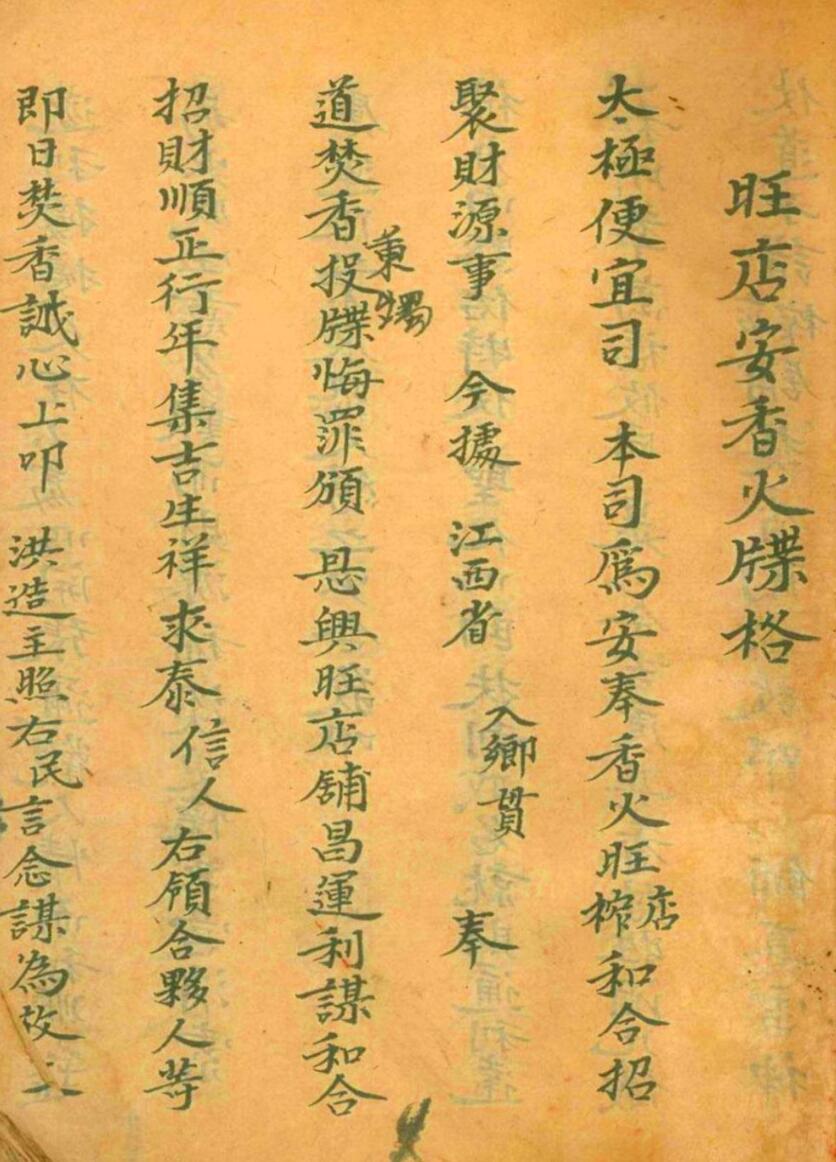 旺店安香火牒格
太極便宜司 本司為安奉香火旺榨店和合招
聚財源事 今據 江西省 入鄉貫 奉
道焚香秉燭投牒悔罪頒 恩興旺店舖昌運利謀和合
招財順正行年集吉生祥求泰 信人右領合夥人等
即日焚香誠心上叩 洪造主照右民言念謀為故